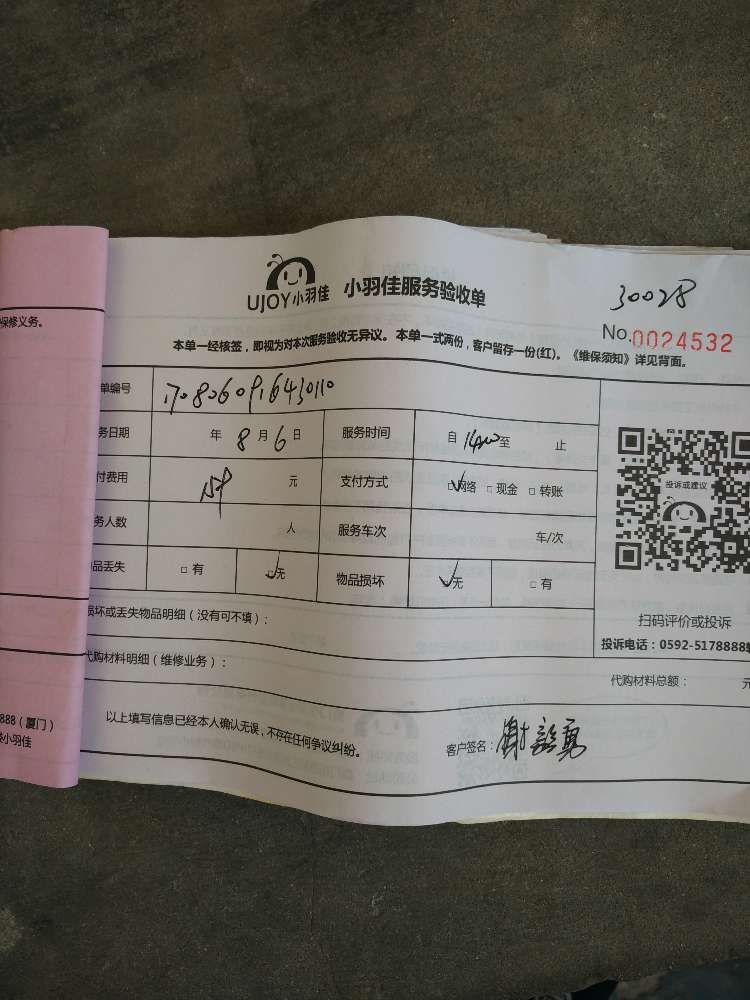 保修义务。
888（厦门）
小羽佳
UJOY小羽佳 小羽佳服务验收单
30028
No.0024532
本单一经核签，即视为对本次服务验收无异议。本单一式两份，客户留存一份(红)。《维保须知》详见背面。
单编号 1708060916430110
务日期 年 8 月 6 日 服务时间 自 至 止
付费用 元 支付方式 网络 现金 转账
务人数 人 服务车次 车/次
品丢失 有 无 物品损坏 无 有
投诉或建议
扫码评价或投诉
投诉电话：0592-5178888
损坏或丢失物品明细（没有可不填）：
代购材料明细（维修业务）：
代购材料总额： 元
以上填写信息已经本人确认无误，不存在任何争议纠纷。
客户签名：谢